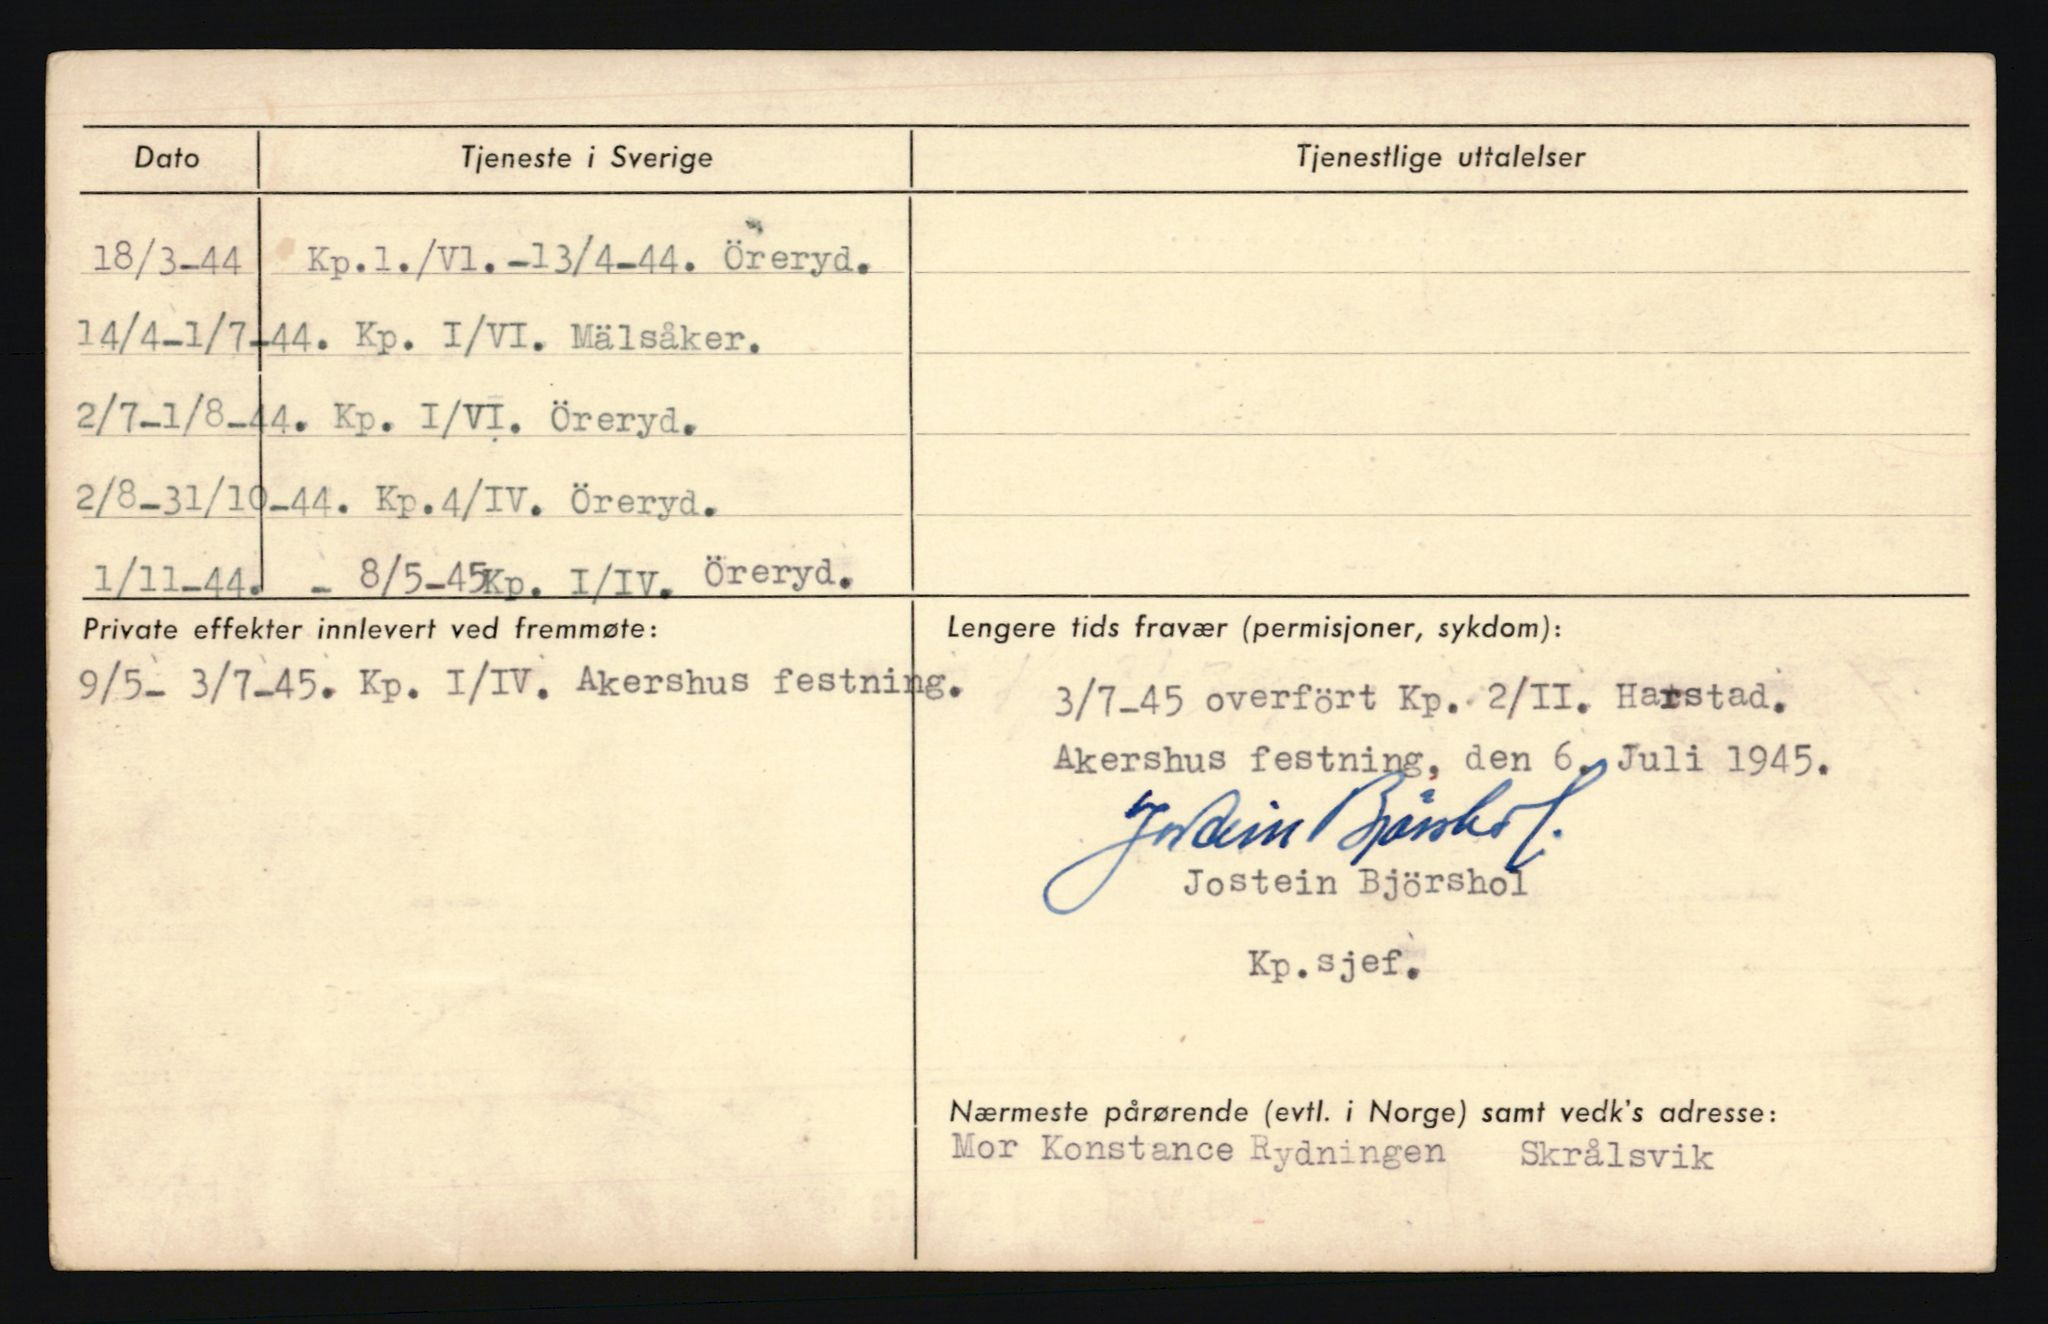 Dato Tjeneste i Sverige Tjenestlige uttalelser
18/3-44 Kp.1./Vl.-13/4-44. Öreryd.
14/4-1/7-44. Kp. I/VI. Mälsåker.
2/7-1/8-44. Kp. I/VI. Öreryd.
2/8-31/10-44. Kp.4/IV. Öreryd.
1/11-44. - 8/5-45Kp. I/IV. Öreryd.
Private effekter innlevert ved fremmøte:
9/5- 3/7-45. Kp. I/IV. Akershus festning.
Lengere tids fravær (permisjoner, sykdom):
3/7-45 overfört Kp. 2/II. Harstad.
Akershus festning, den 6. Juli 1945.
Jostein Bjørshol.
Jostein Björshol
Kp.sjef.
Nærmeste pårørende (evtl. i Norge) samt vedk's adresse:
Mor Konstance Rydningen Skrålsvik